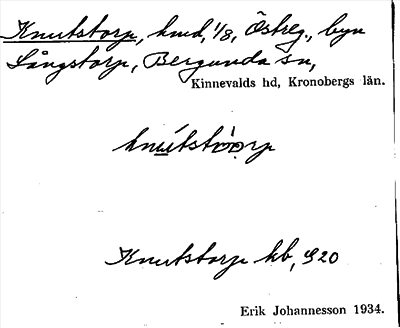 Knutstorp, hmd, 1/8, Östreg., byn
Långstorp, Bergunda sn,
Kinnevalds hd, Kronobergs län.
knútstòrp
Knutstorp hb, S20
Erik Johannesson 1934.